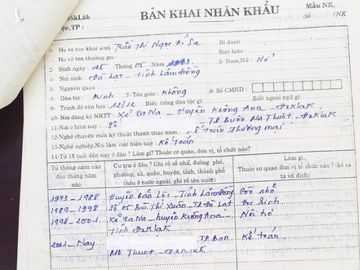 ĐắkLắk
BẢN KHAI NHÂN KHẨU
Mẫu NK,
1. Họ và tên khai sinh Trần Thị Ngọc Ái Sa Bí danh
Họ và tên thường gọi Biệt hiệu
2- Sinh ngày 25 Tháng 05 năm 1973 3- Nam,Nữ Nữ
4- Nơi sinh Đà Lạt - Tỉnh Lâm Đồng
Nguyên quán
5- Dân tộc Kinh 7- Tôn giáo Không 8- Số CMND
9- Trình độ văn hóa 12/12 Biết tiếng dân tộc gì:
10- Nơi đăng ký NKTT Xã Ea Na - Huyện Krông Ana - ĐakLak
11- Nơi ở hiện nay Số TP Buôn Ma Thuột - ĐakLak
12- Nghề chuyên môn kỹ thuật thành thạo nhất Kế Toán Thương mại
13- Nghề nghiệp hiện nay Kế Toán
14- Từ 15 tuổi đến nay ở đâu ? Làm gì? Thuộc cơ quan, đơn vị, tổ chức nào?
Từ tháng năm đến tháng năm nào
Cư trú ở đâu ( Ghi rõ số nhà, đường phố, phường, xã, quận, huyện, tỉnh, thành phố (nếu ở nước ngoài, ghi rõ tên nước)
Làm gì,
Thuộc cơ quan, đơn vị, tổ chức nào
1973 - 1988 Huyện Bảo Lộc - Tỉnh Lâm Đồng Còn nhỏ
1989 - 1998 Số 05 Bùi Thị Xuân - TP Đà Lạt Học Sinh
1998 - 2001 Xã Ea Na - huyện Krông Ana - Nội trợ
Tỉnh ĐakLak
2001 - Nay TP Buôn Kế toán
Ma Thuột - ĐakLak